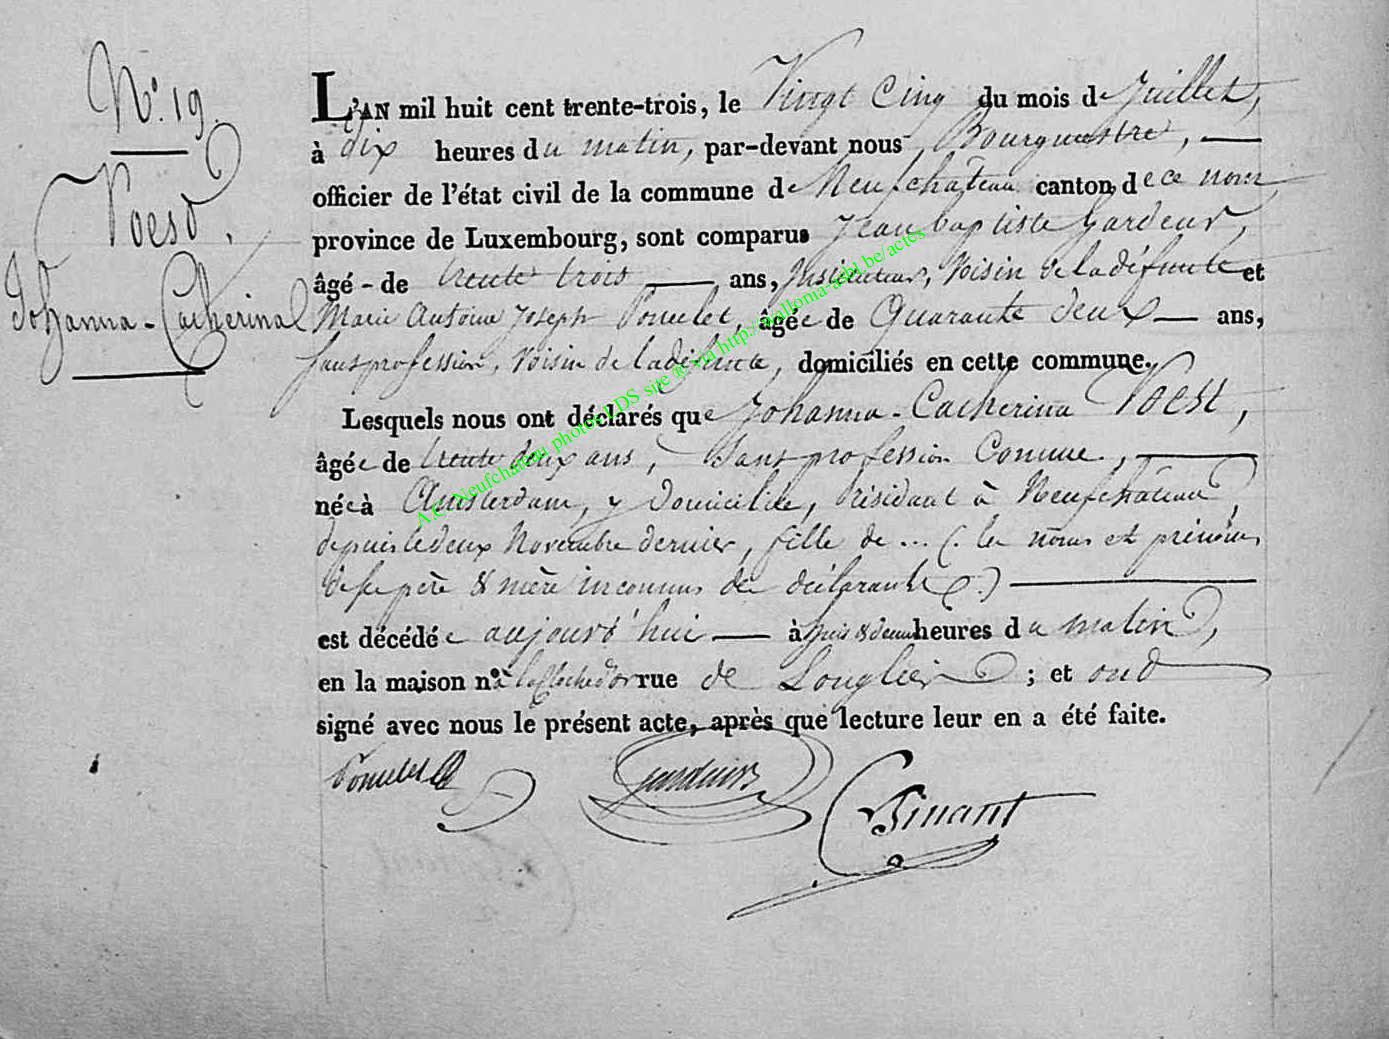 N.° 19.
Voest,
Johanna-Catherina
L'AN mil huit cent trente-trois, le Vingt Cinq du mois de Juillet,
à dix heures du matin, par-devant nous Bourgmestre,
officier de l'état civil de la commune de Neufchateau canton de ce nom
province de Luxembourg, sont comparus Jean baptiste Gardeur,
âgé - de trente trois ans, Instituteur, Voisin de la défunte et
Marie Antoine Joseph Poncelet, âgée de Quarante deux ans,
sans profession, Voisin de la défunte, domiciliés en cette commune.
Lesquels nous ont déclarés que Johanna-Catherina Voest,
âgée de trente deux ans, Sans profession Connue,
née à Amsterdam, y Domiciliée, Résidant à Neufchateau
depuis le deux Novembre dernier, fille de ... (. les noms et prénoms
de ses père & mère inconnus des déclarants.)
est décédée aujourd'hui à heures du matin,
en la maison n.° à la Cloche d'or rue de Longlier ; et ont
signé avec nous le présent acte, après que lecture leur en a été faite.
Poncelet Gardeur Binant
A.E. Neufchateau photos LDS site @ via http://wallonia-asbl.be/actes